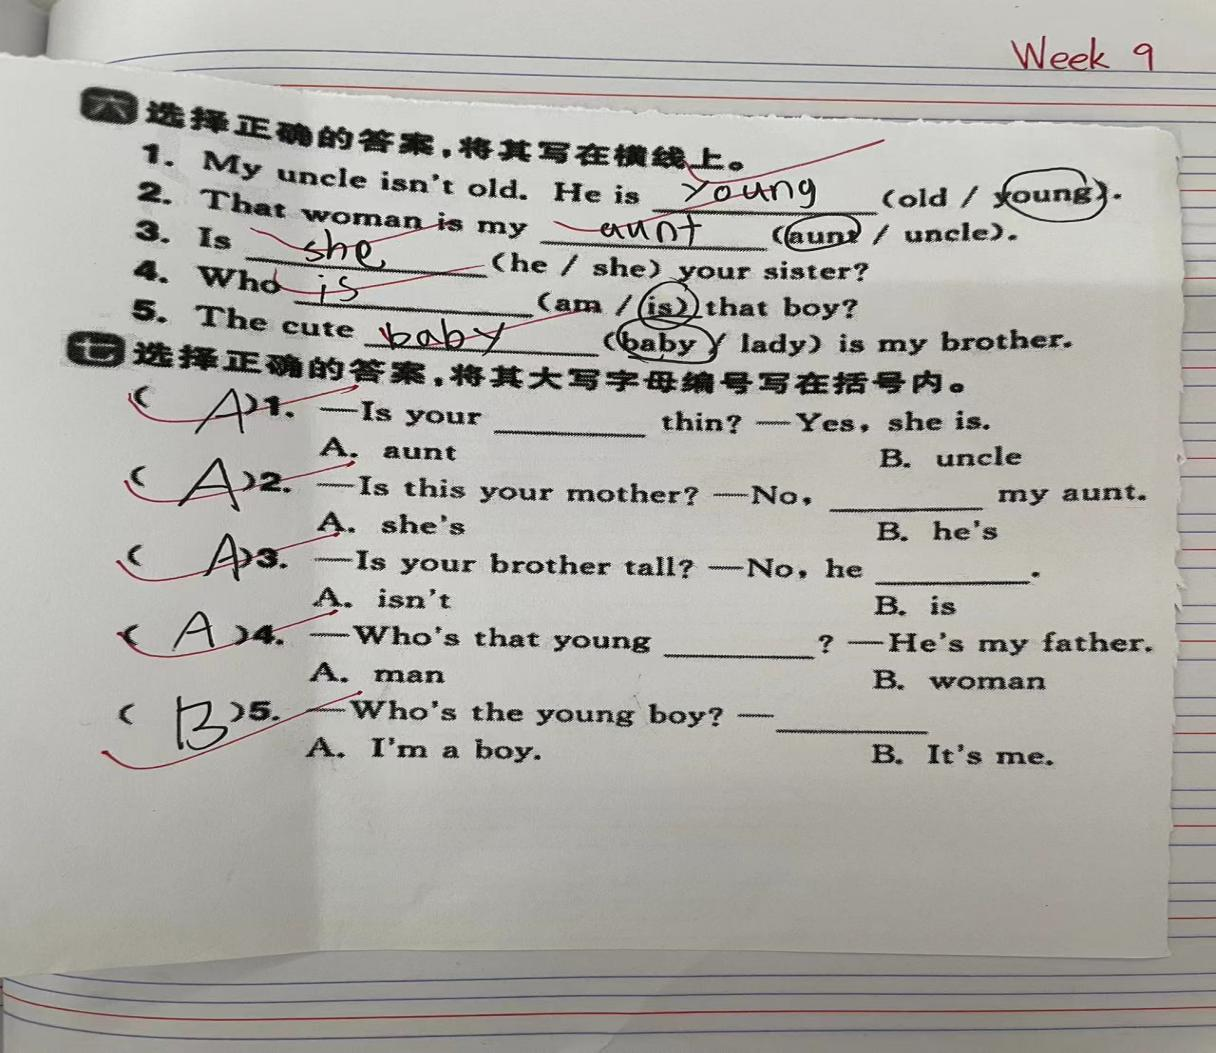 Week 9
六 选择正确的答案，将其写在横线上。
1. My uncle isn't old. He is young (old / young).
2. That woman is my aunt (aunt / uncle).
3. Is she (he / she) your sister?
4. Who is (am / is) that boy?
5. The cute baby (baby / lady) is my brother.
七 选择正确的答案，将其大写字母编号写在括号内。
( A )1. —Is your ______ thin? —Yes, she is.
A. aunt B. uncle
( A )2. —Is this your mother? —No, ______ my aunt.
A. she's B. he's
( A )3. —Is your brother tall? —No, he ______.
A. isn't B. is
( A )4. —Who's that young ______? —He's my father.
A. man B. woman
( B )5. —Who's the young boy? —______
A. I'm a boy. B. It's me.